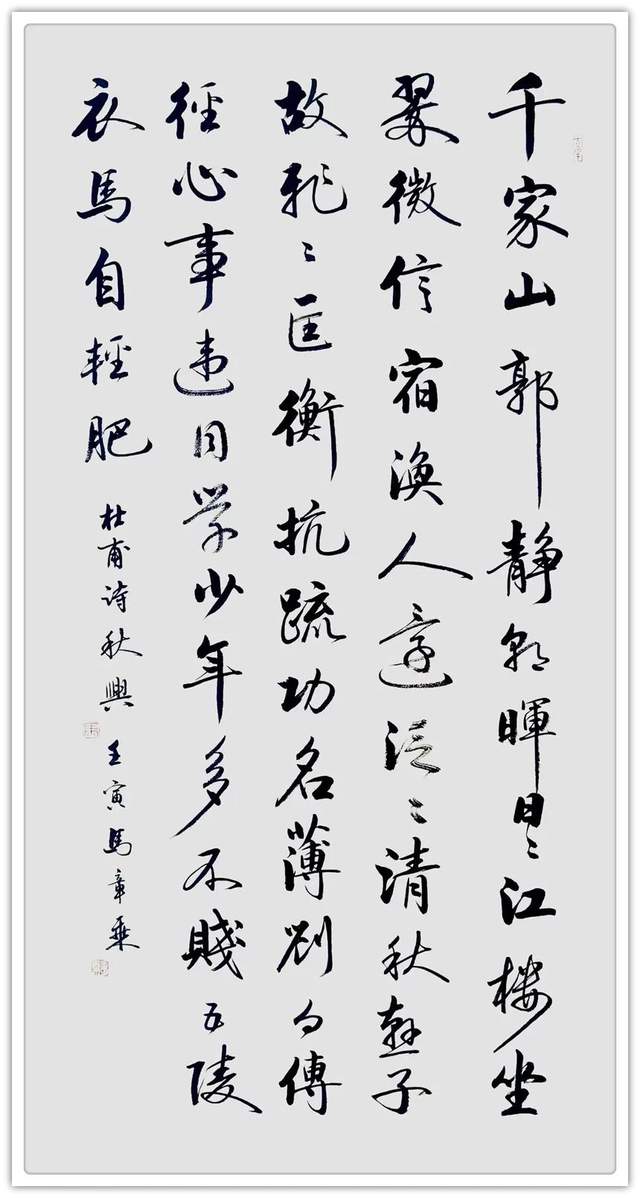 千家山郭静朝暉日〻江楼坐
翠微信宿漁人還泛〻清秋燕子
故飛〻匡衡抗疏功名薄劉向傳
徑心事違同学少年多不賤五陵
衣馬自輕肥
杜甫诗秋興 壬寅馬章乘